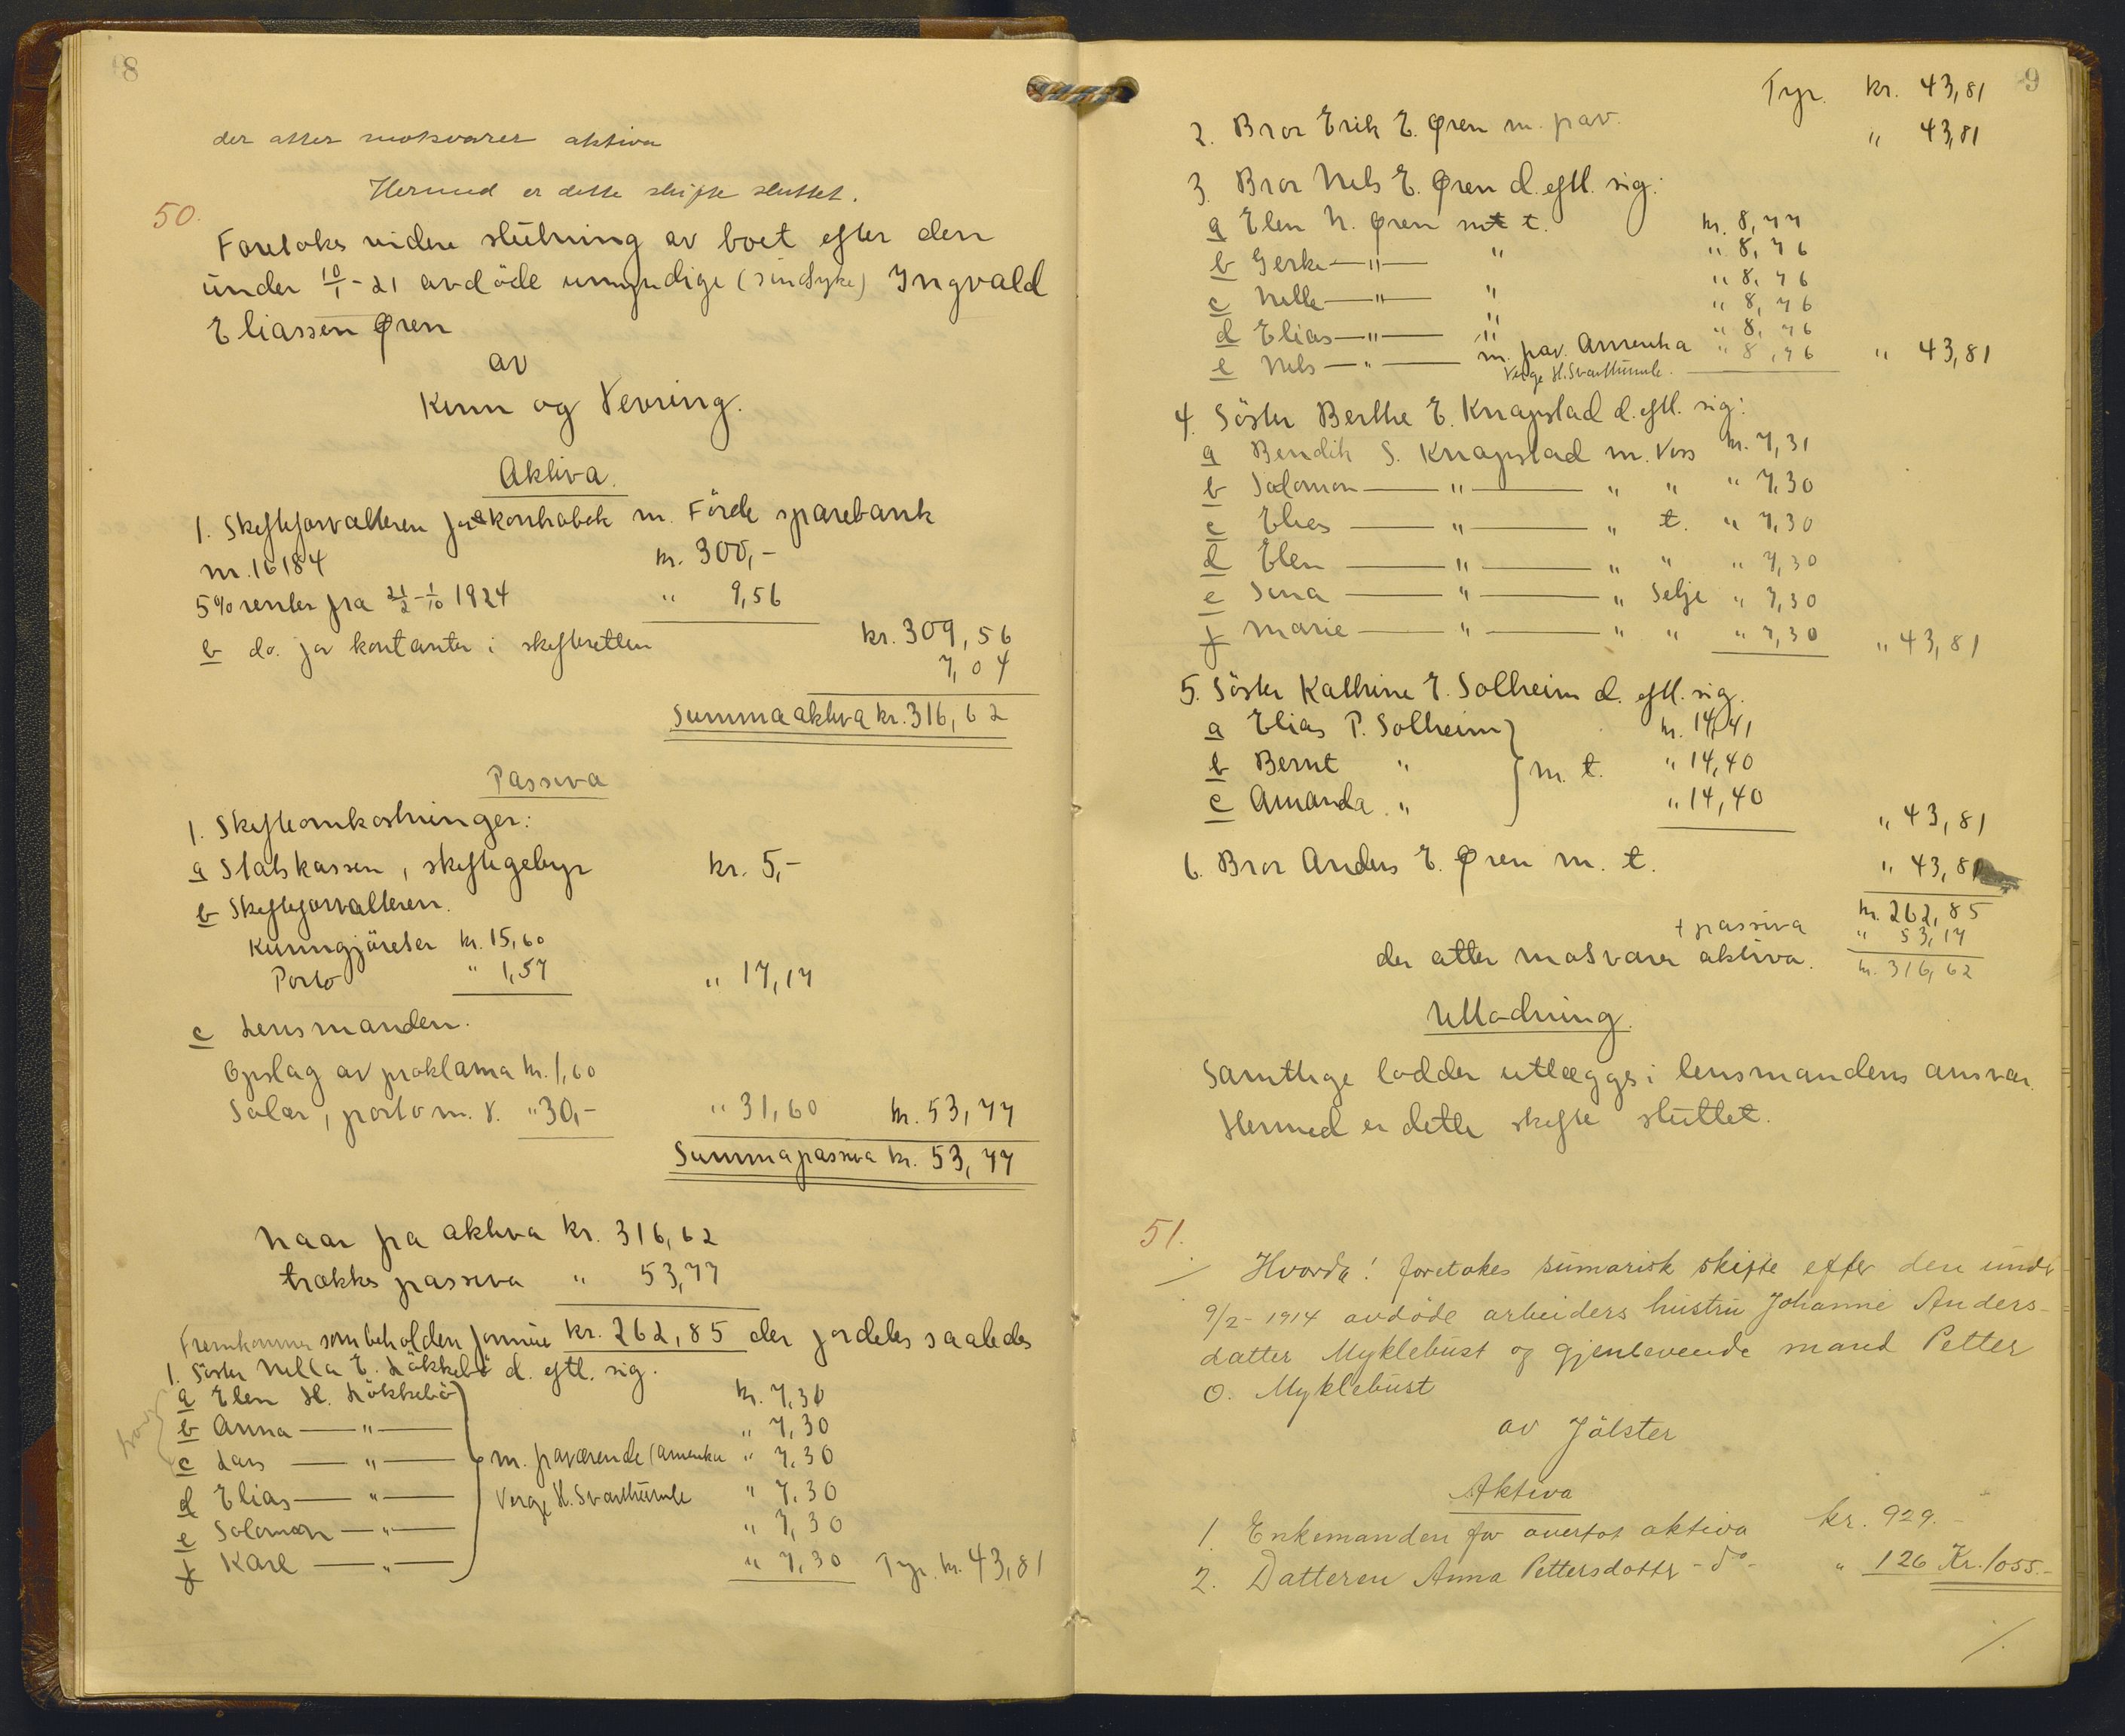 8
der atter motsvarer aktiva
Hermed er dette skifte sluttet.
50.
Foretokes videre slutning av boet efter den
under 10/1-21 avdöde umyndige (sindsyke) Yngvald
Eliassen Øren
av
Kinn og Vevring.
Aktiva.
1. Skifteforvalteren for a kontrabok m. Förde sparebank
nr. 16184 kr. 300,-
5% renter fra 21/2-1/10 1924 " 9,56 kr. 309,56
b do. for kontanter i skifteretten 7,04
Summa aktiva kr. 316,62
Passiva
1. Skifteomkostninger:
a Statskassen, skiftegebyr kr. 5,-
b Skifteforvalteren.
Kunngjörelser kr. 15,60
Porto " 1,57 " 17,17
c Lensmanden.
Opslag av proklama kr. 1,60
Salær, porto m. v. " 30,- " 31,60 kr. 53,77
Summa passiva kr. 53,77
Naar fra aktiva kr. 316,62
trækkes passiva " 53,77
Fremkommer som beholden formue kr. 262,85 der fordeles saaledes
1. Söster Nella E. Løkkebö d. eftl. sig.
a Elen H. Løkkebö kr. 7,30
b Anna — " — " 7,30
c Lars — " — m. fraværende (Amerika " 7,30
d Elias — " — Verge H. Svarthumle " 7,30
e Solomon — " — " 7,30
f Karl — " — " 7,30 Tyr. kr. 43,81
9
Tyr. kr. 43,81
2. Bror Erik E. Øren m. frav. " 43,81
3. Bror Nels E. Øren d. eftl. sig:
a Elen N. Øren m t. kr. 8,77
b Gerke — " — " " 8,76
c Nelle — " — " " 8,76
d Elias — " — " " 8,76
" 8,76
e Nels — " — m. frav. Amerika " 8,76 " 43,81
Verge H. Svarthumle.
4. Söster Berthe E. Knapstad d. eftl. sig:
a Bendik S. Knapstad m. Voss kr. 7,31
b Salomon — " — " " " 7,30
c Elias — " — " t. " 7,30
d Elen — " — " " " 7,30
e Sina — " — " Selje " 7,30
f Marie — " — " " " 7,30 " 43,81
5. Söster Kathrine E. Solheim d. eftl. sig.
a Elias P. Solheim kr. 14,41
b Bernt " m. t. " 14,40
c Amanda " " 14,40 " 43,81
6. Bror Anders E. Øren m. t. " 43,81
kr. 262,85
+ passiva " 53,77
der atter motsvarer aktiva. kr. 316,62
Utlodning.
Samtlige lodder utlægges i lensmandens ansvar.
Hermed er dette skifte sluttet.
51.
Hvorda! foretokes sumarisk skifte efter den under
9/2-1914 avdöde arbeiders hustru Johanne Anders-
datter Myklebust og gjenlevende mand Petter
O. Myklebust
av Jölster
Aktiva
1. Enkemanden for overtat aktiva kr. 929.-
2. Datteren Anna Pettersdatter - do - " 126 Kr. 1055.-